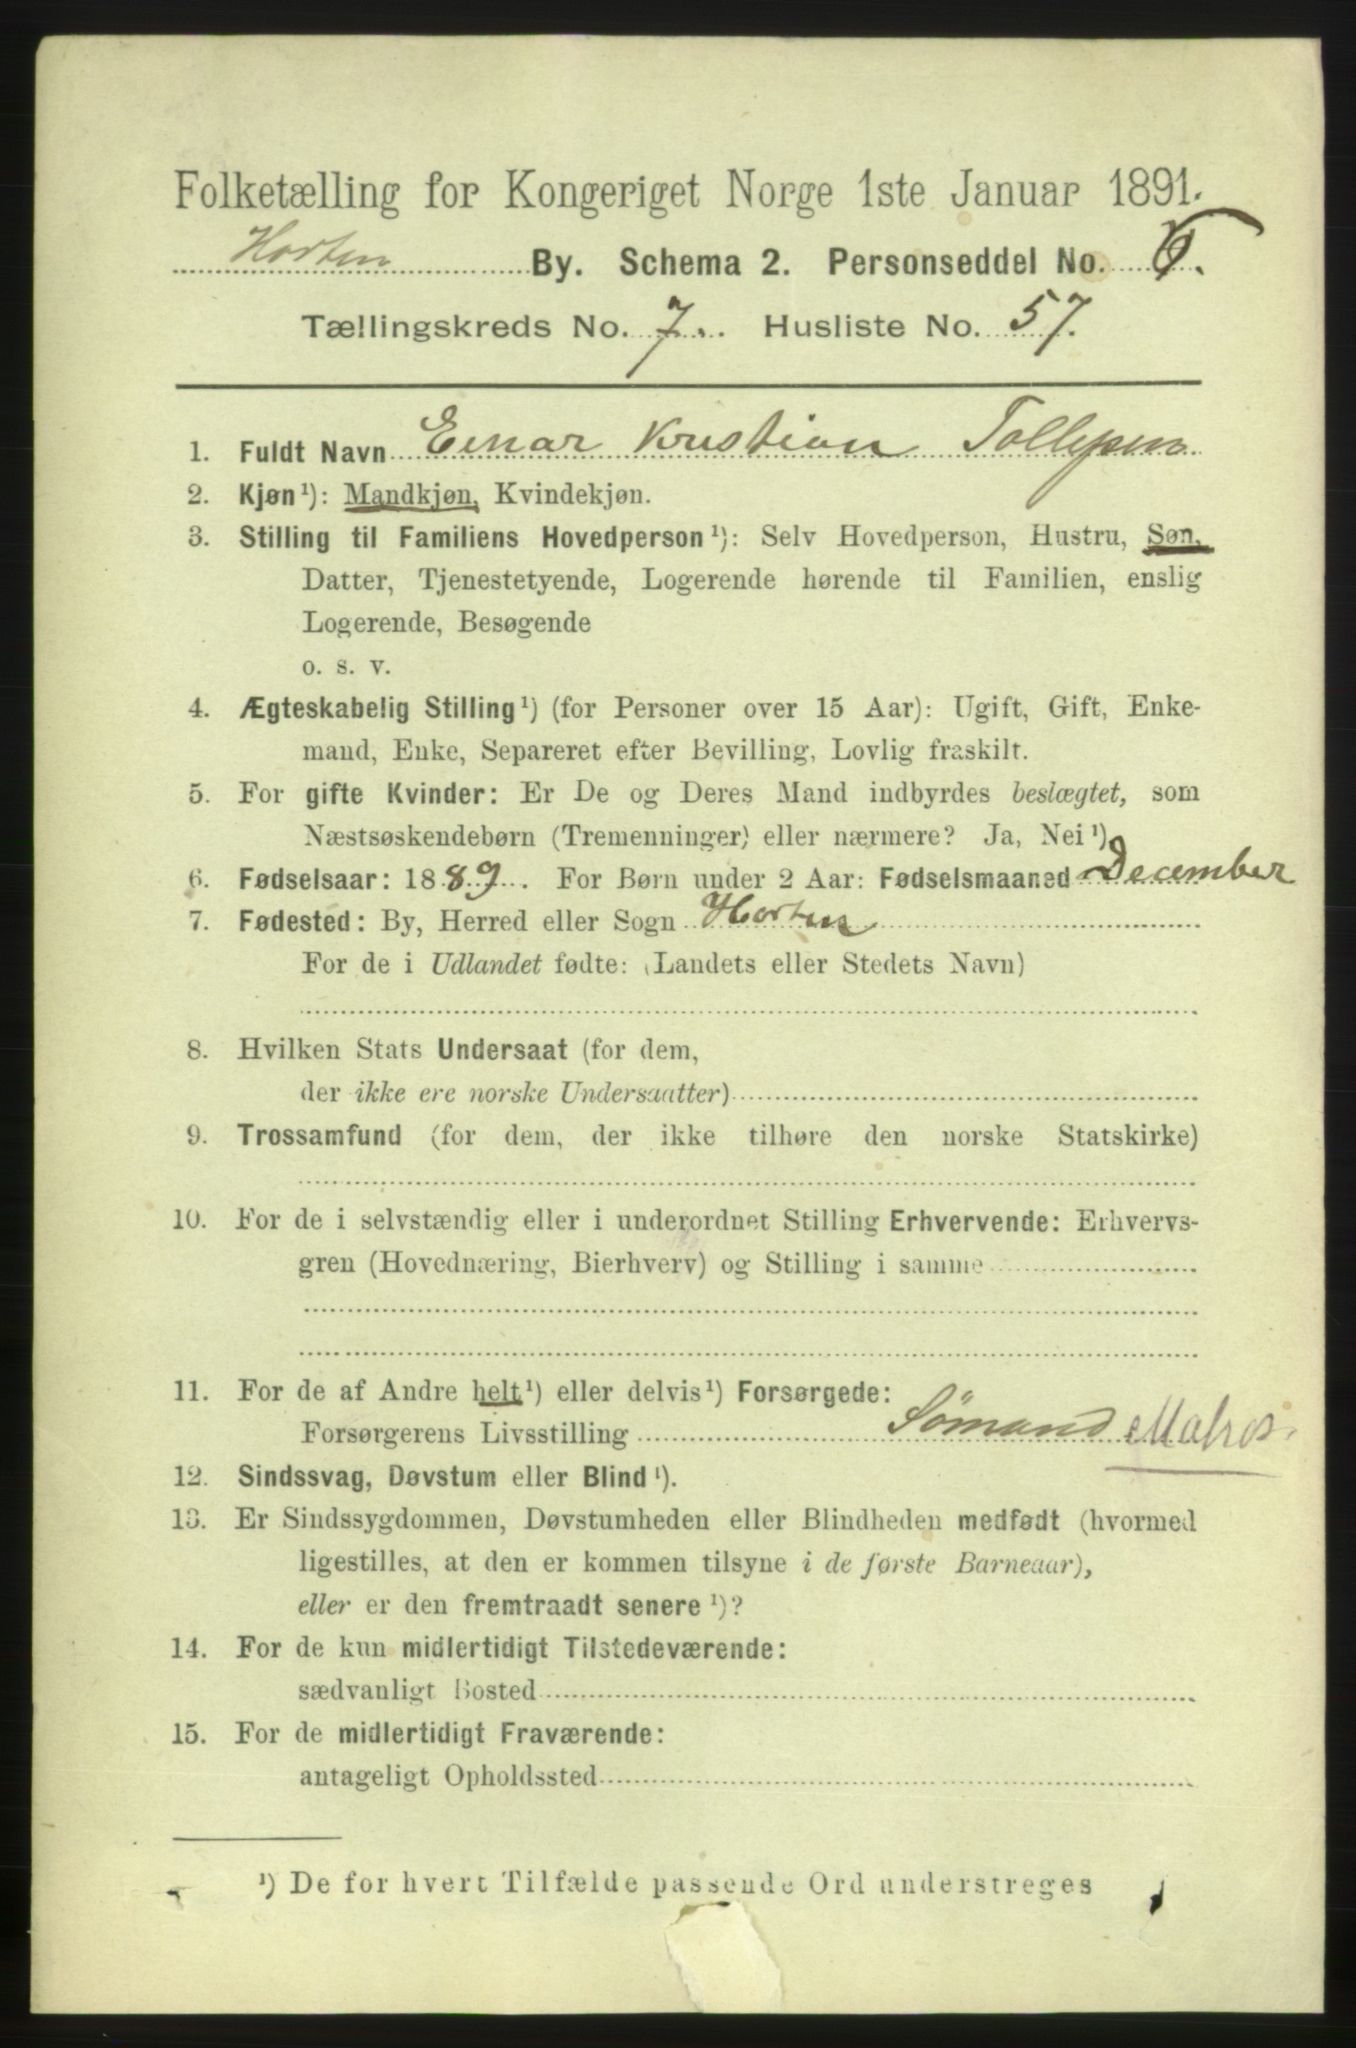 Folketælling for Kongeriget Norge 1ste Januar 1891.
Horten By. Schema 2. Personseddel No. 6.
Tællingskreds No. 7. Husliste No. 57.
1. Fuldt Navn Einar Kristian Tollefsen
2. Kjøn¹): Mandkjøn, Kvindekjøn.
3. Stilling til Familiens Hovedperson¹): Selv Hovedperson, Hustru, Søn,
Datter, Tjenestetyende, Logerende hørende til Familien, enslig
Logerende, Besøgende
o. s. v.
4. Ægteskabelig Stilling¹) (for Personer over 15 Aar): Ugift, Gift, Enke-
mand, Enke, Separeret efter Bevilling, Lovlig fraskilt.
5. For gifte Kvinder: Er De og Deres Mand indbyrdes beslægtet, som
Næstsøskendebørn (Tremenninger) eller nærmere? Ja, Nei¹)
6. Fødselsaar: 1889. For Børn under 2 Aar: Fødselsmaaned December
7. Fødested: By, Herred eller Sogn Horten
For de i Udlandet fødte: (Landets eller Stedets Navn)
8. Hvilken Stats Undersaat (for dem,
der ikke ere norske Undersaatter)
9. Trossamfund (for dem, der ikke tilhøre den norske Statskirke)
10. For de i selvstændig eller i underordnet Stilling Erhvervende: Erhvervs-
gren (Hovednæring, Bierhverv) og Stilling i samme
11. For de af Andre helt¹) eller delvis¹) Forsørgede:
Forsørgerens Livsstilling Sømand Matros.
12. Sindssvag, Døvstum eller Blind¹).
13. Er Sindssygdommen, Døvstumheden eller Blindheden medfødt (hvormed
ligestilles, at den er kommen tilsyne i de første Barneaar),
eller er den fremtraadt senere¹)?
14. For de kun midlertidigt Tilstedeværende:
sædvanligt Bosted
15. For de midlertidigt Fraværende:
antageligt Opholdssted
¹) De for hvert Tilfælde passende Ord understreges